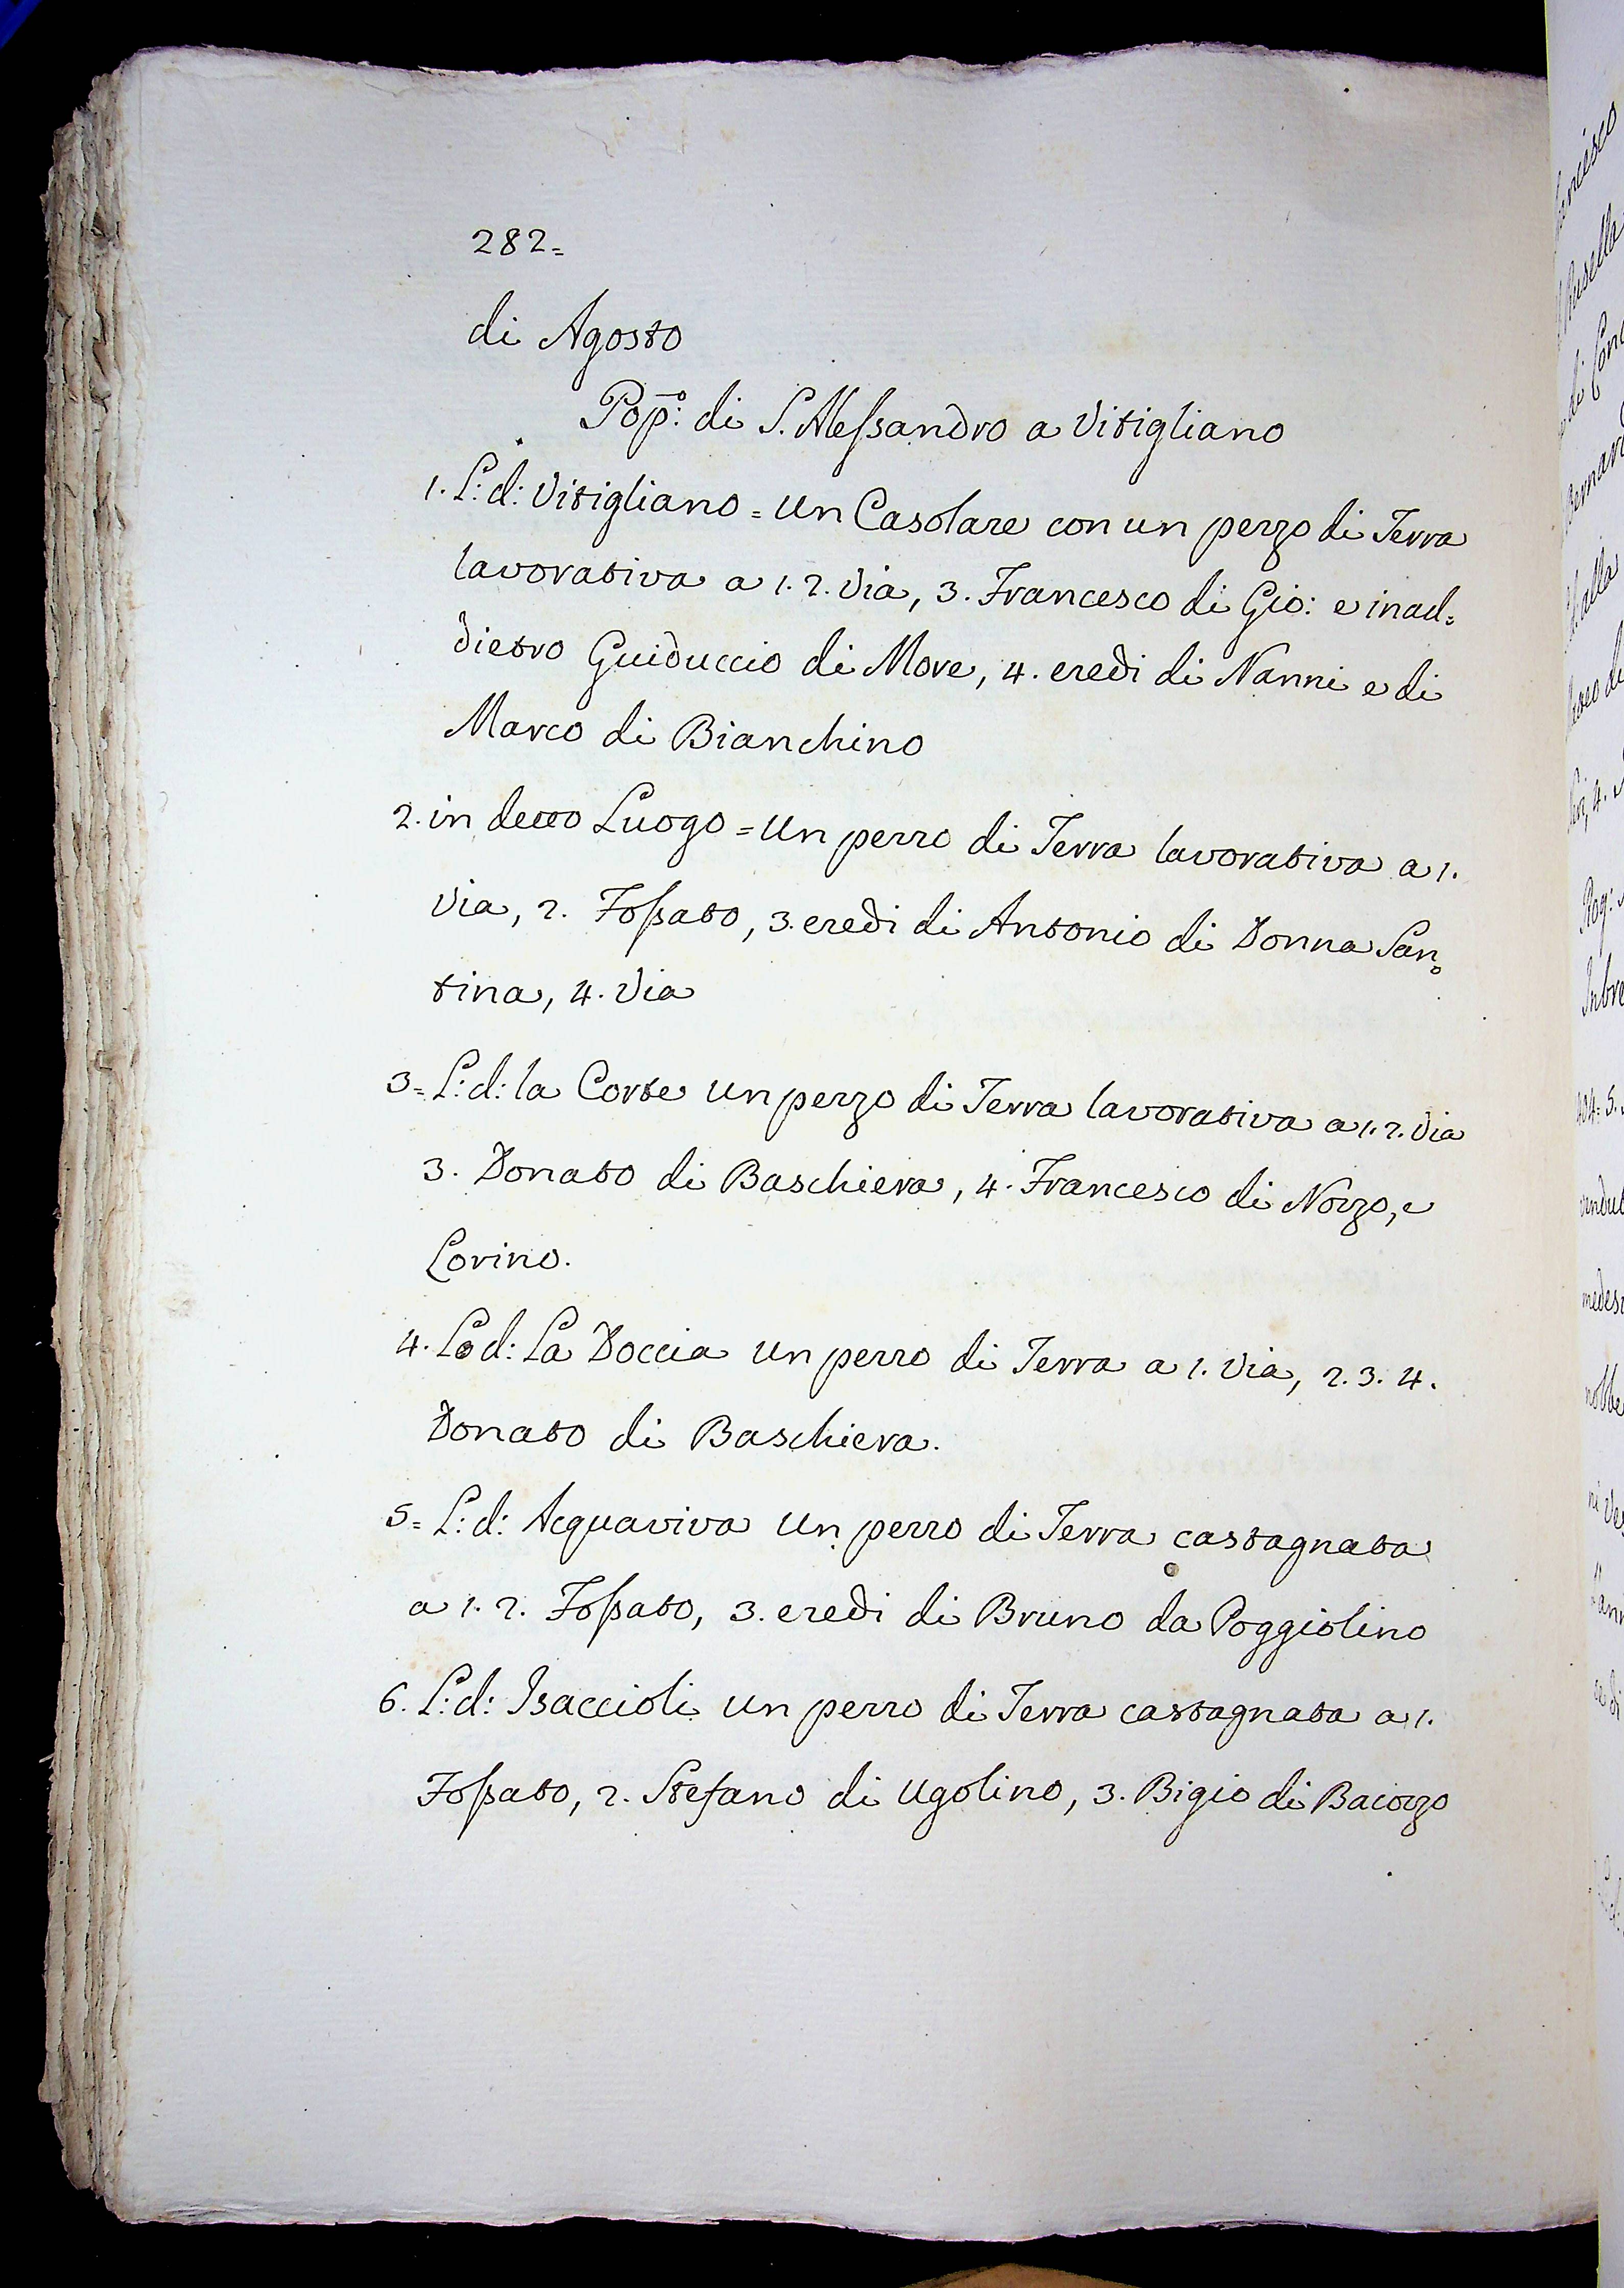 282=
di Agosto
Pop̄º: di S. Alessandro a Vitigliano
1. L: d: Vitigliano = Un Casolare con un pezzo di Terra
lavorativa a 1. 2. Via, 3. Francesco di Gio: e inad=
dietro Guiduccio di More, 4. eredi di Nanni e di
Marco di Bianchino
2. in detto Luogo = Un pezzo di Terra lavorativa a 1.
Via, 2. Fossato, 3. eredi di Antonio di Donna San=
tina, 4. Via
3= L: d: la Corte Un pezzo di Terra lavorativa a 1. 2. Via
3. Donato di Baschiera, 4. Francesco di Nozzo, e
Lorino.
4. Lo d: La Doccia Un pezzo di Terra a 1. Via, 2. 3. 4.
Donato di Baschiera.
5= L: d: Acquaviva Un pezzo di Terra castagnata
a 1. 2. Fossato, 3. eredi di Bruno da Poggiolino
6. L: d: Isaccioli Un pezzo di Terra castagnata a 1.
Fossato, 2. Stefano di Ugolino, 3. Bigio di Baiozzo